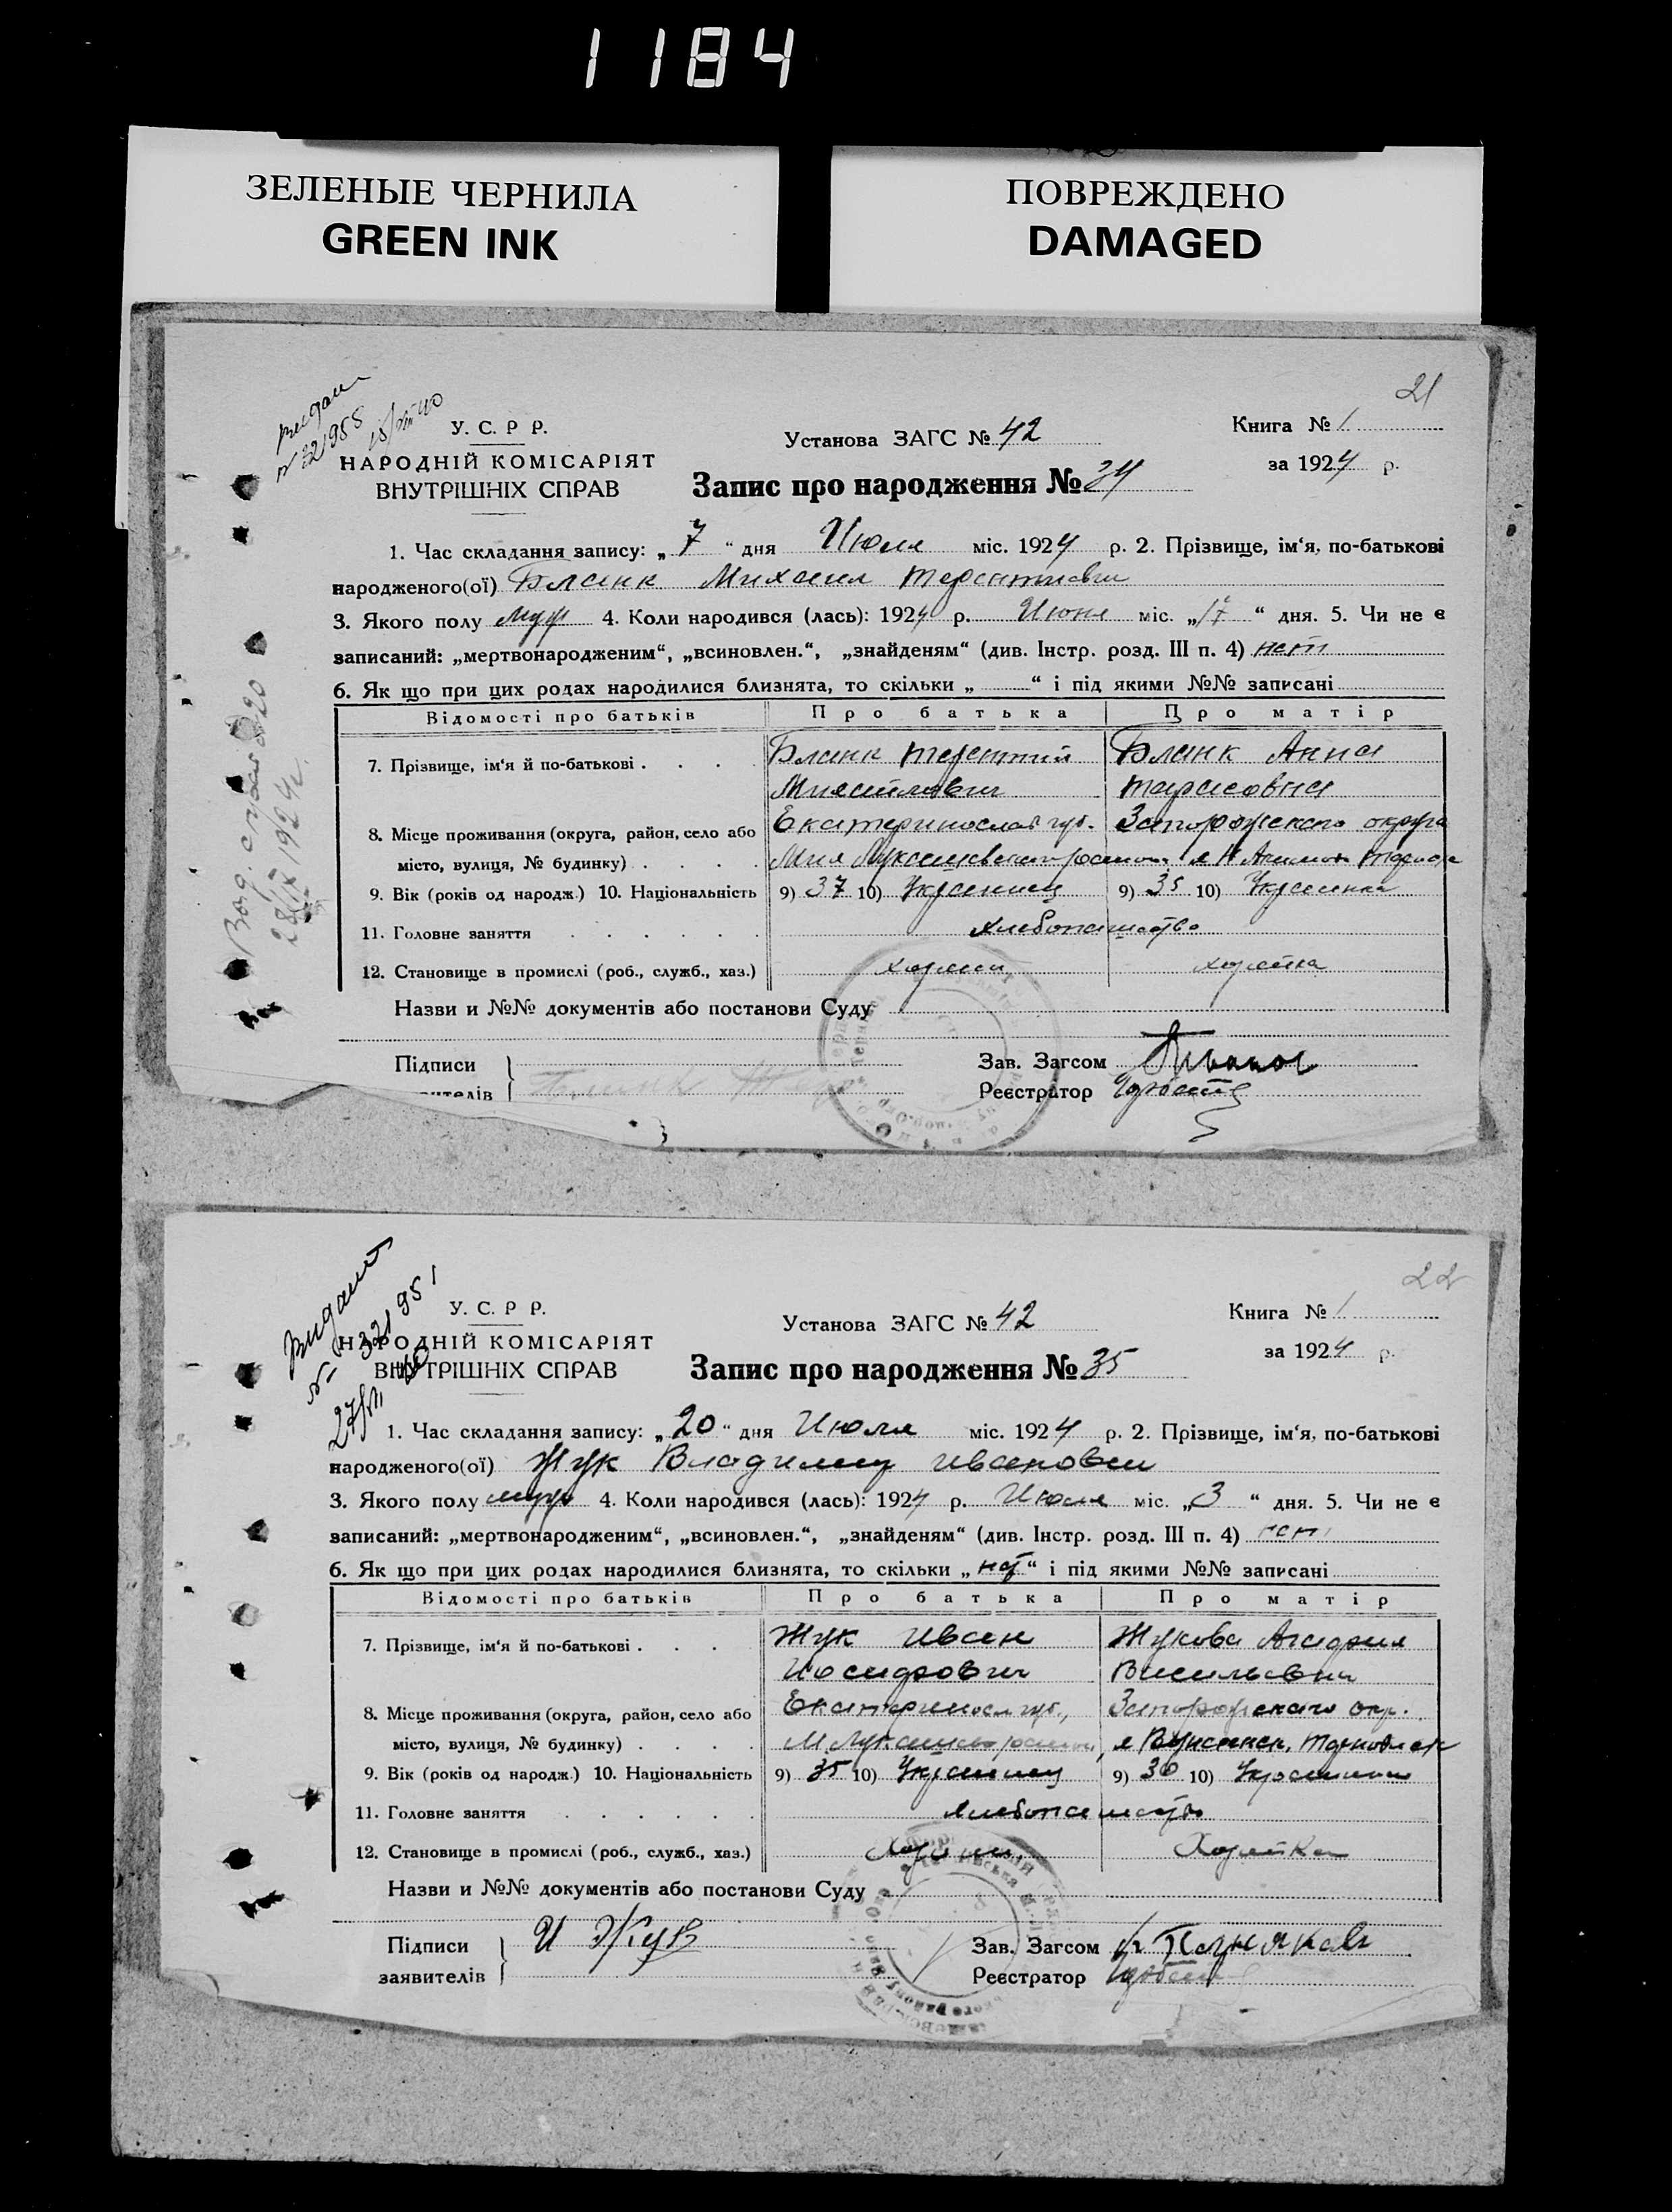 1184
ЗЕЛЕНЫЕ ЧЕРНИЛА
GREEN INK
ПОВРЕЖДЕНО
DAMAGED
21
У. С. Р Р.
НАРОДНІЙ КОМІСАРІЯТ
ВНУТРІШНІХ СПРАВ
Установа ЗАГС № 42
Книга № 1
за 1924 р.
Запис про народження № 34
1. Час складання запису: „ 7 “ дня Июля міс. 1924 р. 2. Прізвище, ім‘я, по-батькові
народженого(ої) Бланк Михаил Терентиевич
3. Якого полу муж 4. Коли народився (лась): 1924 р. Июня міс. „ “ дня. 5. Чи не є
записаний: „мертвонародженим“, „всиновлен.“, „знайденям“ (див. Інстр. розд. III п. 4) нет
6. Як що при цих родах народилися близнята, то скільки „ “ і під якими №№ записані
Відомості про батьків Про батька Про матір
7. Прізвище, ім‘я й по-батькові . . . . Бланк Терентий Бланк Анна
Тарасовна
8. Місце проживання (округа, район, село або Екатеринослав губ. Запорожского округа
місто, вулиця, № будинку) . . . .
9. Вік (років од народж.) 10. Національність 9) 37 10) Украинец 9) 35 10) Украинка
11. Головне заняття . . . . . . хлебопашество
12. Становище в промислі (роб., служб., хаз.) хозяин хозяйка
Назви и №№ документів або постанови Суду
Підписи
Зав. Загсом
Реєстратор
22
Видано
№ 321951
У. С. Р Р.
НАРОДНІЙ КОМІСАРІЯТ
ВНУТРІШНІХ СПРАВ
Установа ЗАГС № 42
Книга № 1
за 1924 р.
Запис про народження № 35
1. Час складання запису: „ 20 “ дня Июля міс. 1924 р. 2. Прізвище, ім‘я, по-батькові
народженого(ої) Жук Владимир Иванович
3. Якого полу муж 4. Коли народився (лась): 1924 р. Июля міс. „ 3 “ дня. 5. Чи не є
записаний: „мертвонародженим“, „всиновлен.“, „знайденям“ (див. Інстр. розд. III п. 4) нет
6. Як що при цих родах народилися близнята, то скільки „ нет “ і під якими №№ записані
Відомості про батьків Про батька Про матір
7. Прізвище, ім‘я й по-батькові . . . Жук Иван Жукова
Иосифович Васильевна
8. Місце проживання (округа, район, село або Екатериносл губ., Запорожского окр.
місто, вулиця, № будинку) . . . .
9. Вік (років од народж.) 10. Національність 9) 35 10) Украинец 9) 30 10) Украинка
11. Головне заняття . . . . . . хлебопашество
12. Становище в промислі (роб., служб., хаз.) Хозяин Хозяйка
Назви и №№ документів або постанови Суду
Підписи
заявителів
И Жук
Зав. Загсом
Реєстратор